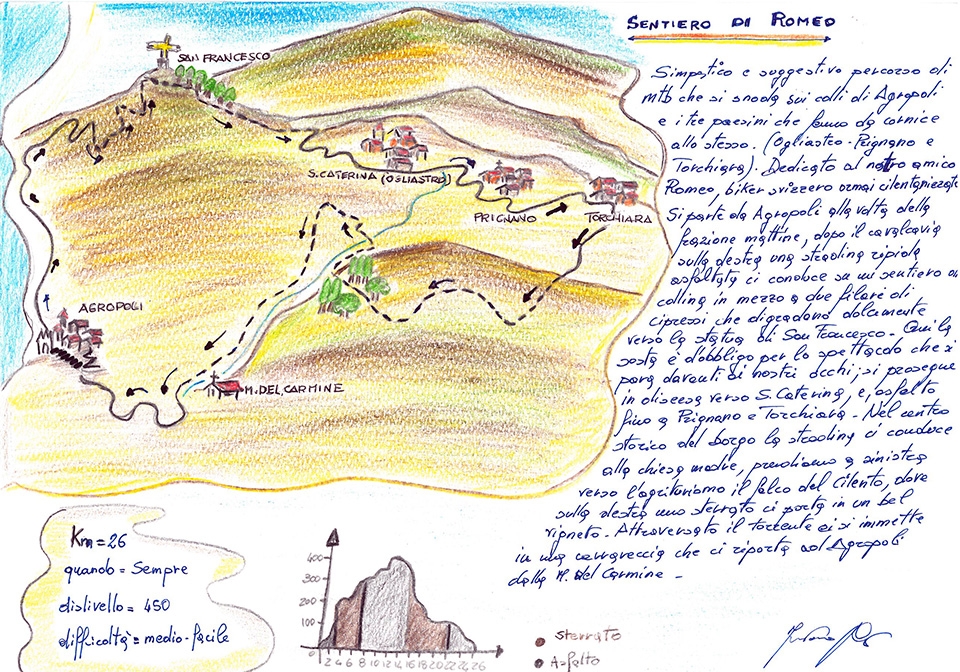 SENTIERO DI ROMEO
Simpatico e suggestivo percorso di
mtb che si snoda sui colli di Agropoli
e i tre paesini che fanno da cornice
allo stesso. (Ogliastro-Prignano e
Torchiara). Dedicato al nostro amico
Romeo, biker svizzero ormai cilentanizzato
Si parte da Agropoli alla volta della
frazione mattine, dopo il cavalcavia
sulla destra una stradina ripida
asfaltata ci conduce su un sentiero in
collina in mezzo a due filari di
cipressi che digradano dolcemente
verso la statua di San Francesco - Qui la
sosta è d'obbligo per lo spettacolo che si
para davanti ai nostri occhi; si prosegue
in discesa verso S. Caterina, e, asfalto
fino a Prignano e Torchiara - Nel centro
storico del borgo la stradina ci conduce
alla chiesa madre, prendiamo a sinistra
verso l'agriturismo il falco del Cilento, dove
sulla destra uno sterrato ci porta in un bel
vigneto. Attraversato il torrente ci si immette
in una carrareccia che ci riporta ad Agropoli
dalla M. del Carmine -
SAN FRANCESCO
S. CATERINA (OGLIASTRO)
PRIGNANO
TORCHIARA
AGROPOLI
M. DEL CARMINE
Km = 26
quando = Sempre
dislivello = 450
difficoltà = medio-facile
400
300
200
100
0
2 4 6 8 10 12 14 16 18 20 22 24 26
sterrato
Asfalto